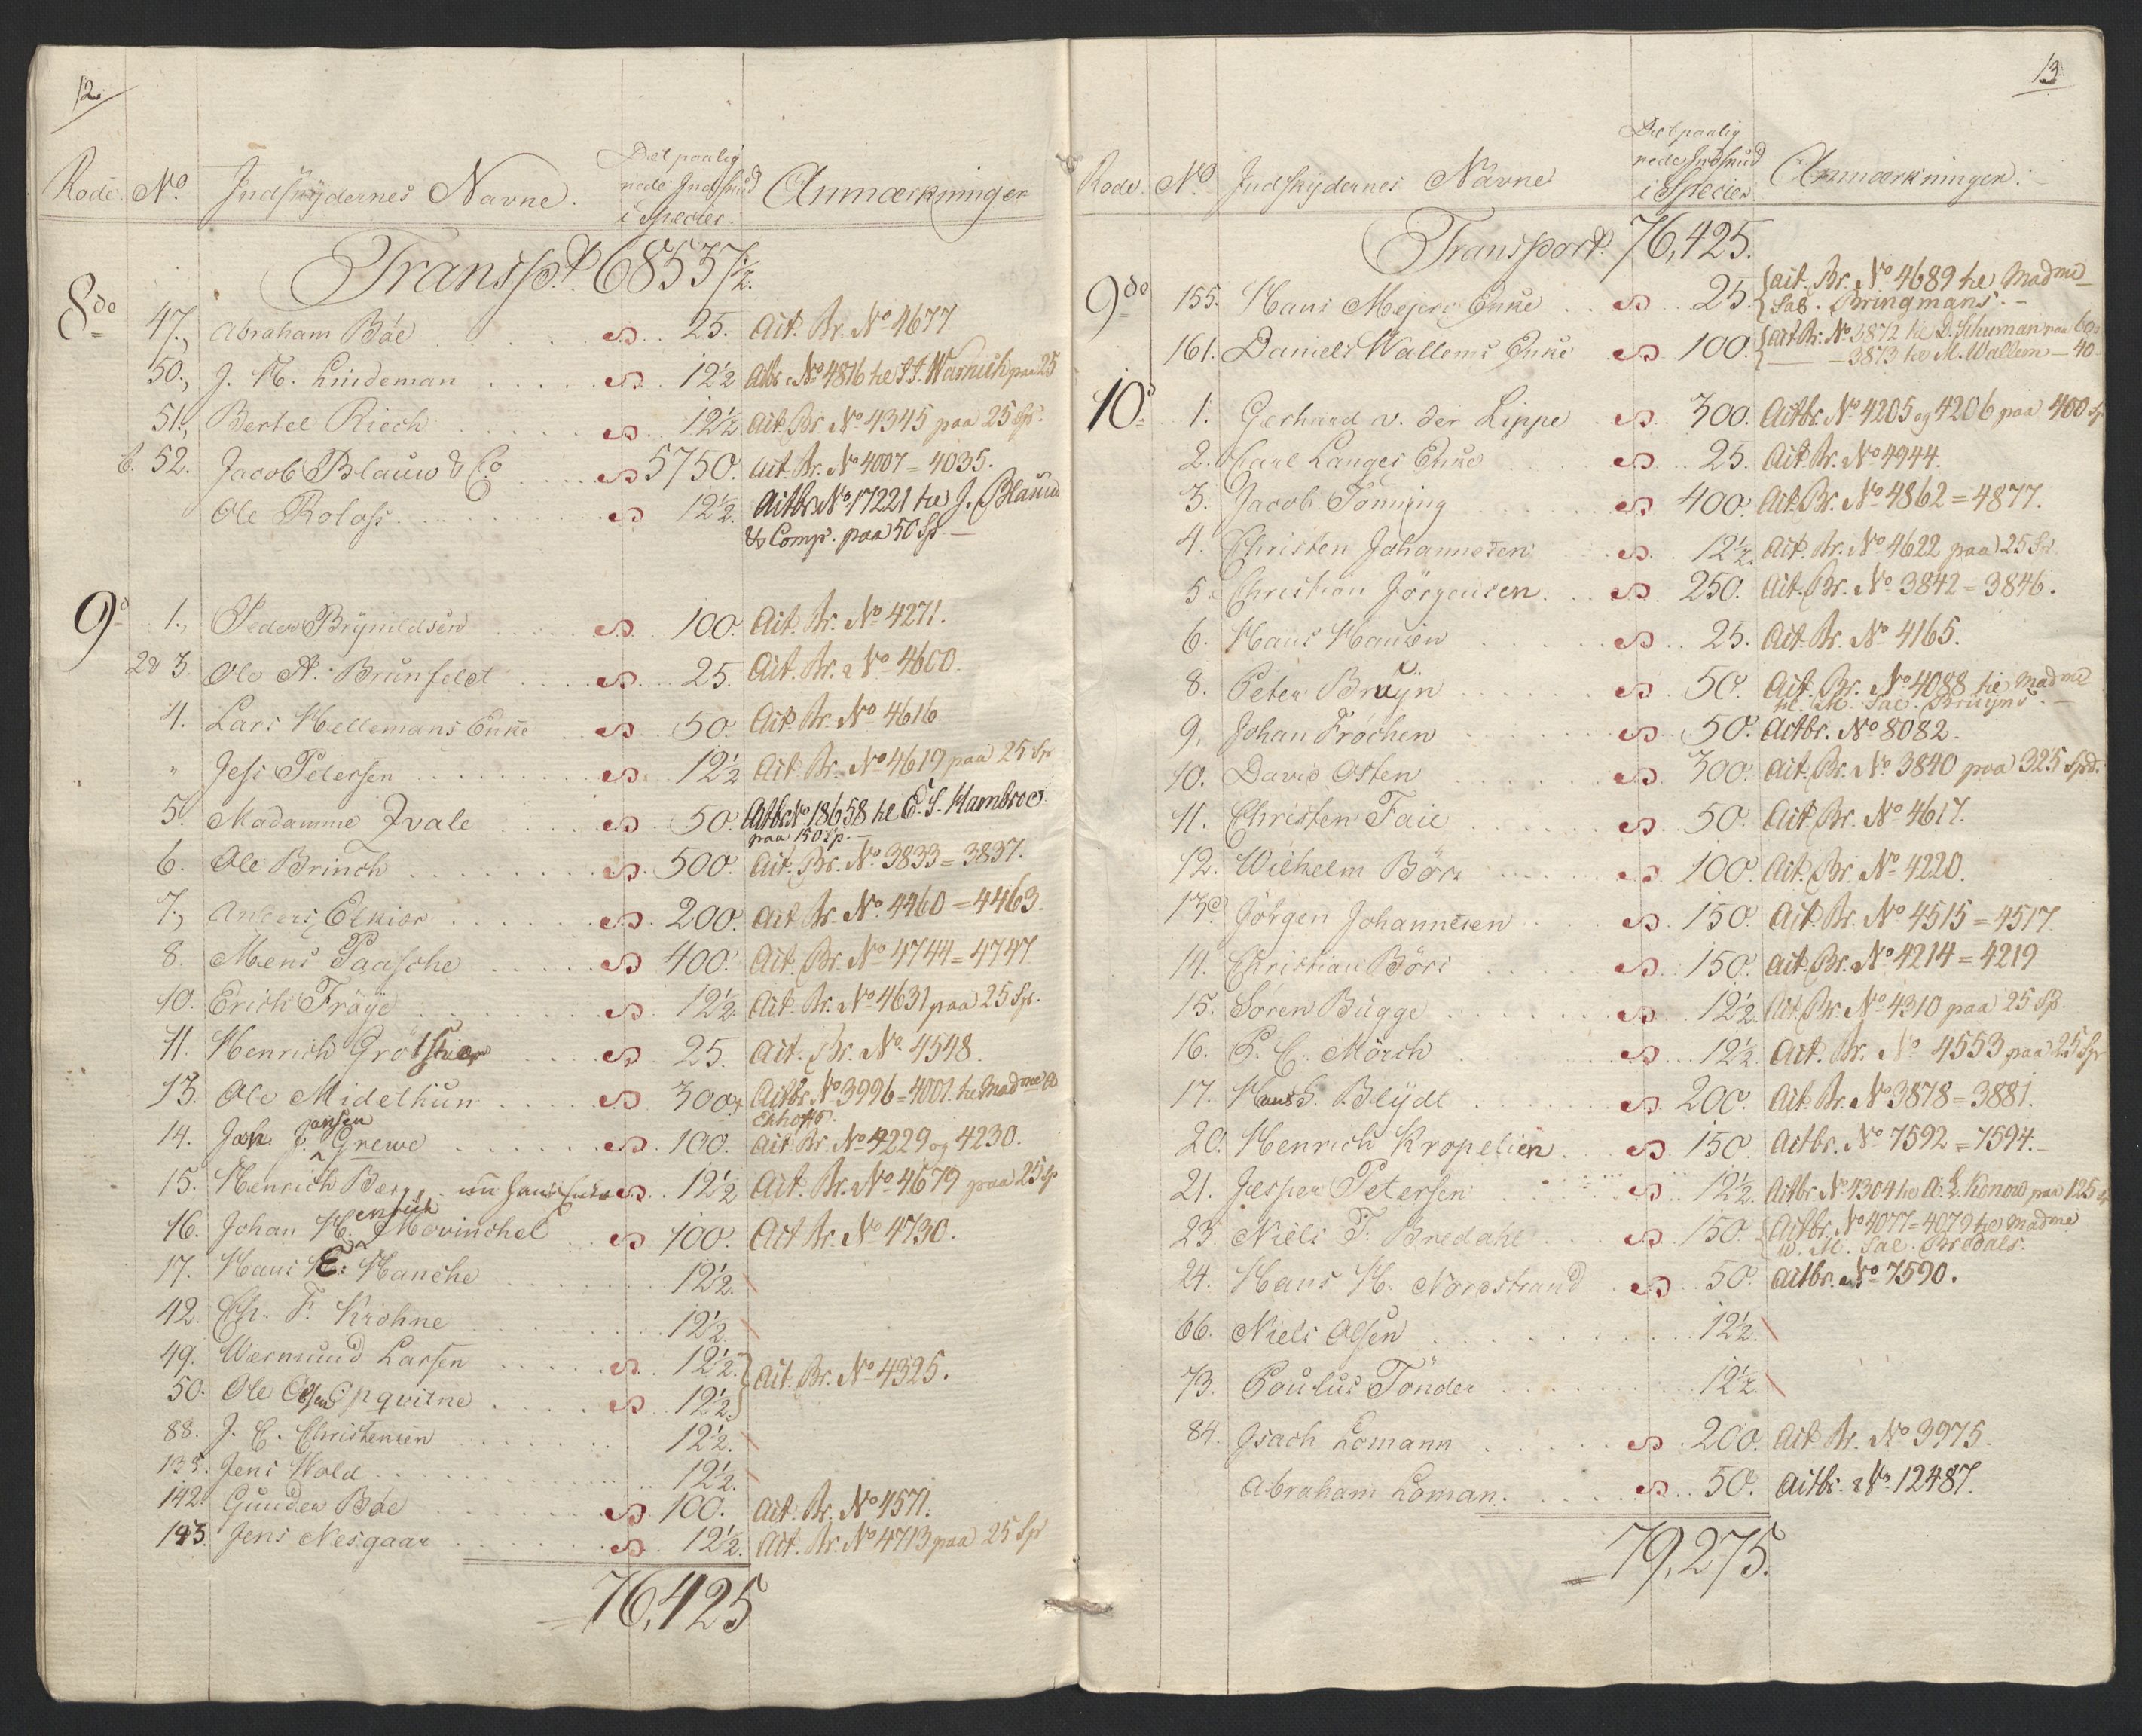 12.
Rode. No. Indskydernes Navne. Det paalignede Indskud i Species. Anmærkninger
Transpt. 68537½.
8de 47., Abraham Böe S 25. Act. Br. No 4677
50., J. H. Lindeman S 12½ Actbr. No 4816 he J. J. Warnich paa 25
51., Bertel Riech S 12½ Act. Br. No 4345 paa 25 Sp.
6. 52. Jacob Blauw & Co S 5750. Act. Br. No 4007 = 4035.
Ole Roloss S 12½. Actbr. No 17221 he J. Blauw
& Comp. paa 50 Sp. —
9d 1., Peder Brynildsen S 100. Act. Br. No 4271.
2 & 3. Ole A. Brunfeldt S 25. Act. Br. No 4600.
4. Lars Hellemans Enke S 50. Act. Br. No 4616
" Jess Petersen S 12½ Act. Br. No 4619 paa 25 Sp
5. Madamme Kvale S 50. Actbr. No 18658 he E. S. Hambroes
paa 150 Sp. —
6. Ole Brinch S 500. Act. Br. No. 3833 = 3837.
7., Anders Elkier S 200. Act. Br. No. 4460 = 4463.
8. Mens Paasche S 400. Act. Br. No 4744 = 4747
10. Erich Fröye S 12½. Act. Br. No 4631 paa 25 Sp.
11. Henrich Grötshier S 25. Act. Br. No. 4548.
13. Ole Midelthun S 300. Actbr. No 3996 = 4001. he Madme
Ekhoff.
14. Joh. Jansen Grewe S 100. Act. Br. No 4229 og 4230.
15. Henrich Berg, nu hans Enke S 12½ Act. Br. No 4679 paa 25 Sp
16. Johan Henrich Movinchel S 100. Act Br. No 4730.
17. Hans E. Hanche 12½.
42. Ch. F. Krohne 12½.
49. Wermund Larsen S 12½. } Act. Br. No 4325.
50. Ole Olsen Opqvitne S 12½. }
88. J. C. Christensen 12½.
135. Jens Hold 12½.
142. Gunder Böe S 100. Act. Br. No 4571.
143. Jens Nesgaar S 12½. Act. Br. No 4713 paa 25 Sp
76,425
13.
Rode. No. Indskydernes Navne Det paalignede Indskud i Species. Anmærkninger.
Transport. 76,425.
9de 155. Hans Mejers Enke S 25. { Act. Br. No 4689 he Madme
Sab. Bringmans. —
161. Daniels Wallems Enke S 100. { Act Br. No 3872 he D. Schuman paa 60
— 3873 he M. Wallem — 40
10d 1. Gerhard v. der Lippe S 300. Actbr. No 4205 og 4206 paa 400 Sp
2. Carl Langes Enke S 25. Act. Br. No 4944.
3. Jacob Tonning S 400. Act. Br. No 4862 = 4877.
4. Christen Johannesen S 12½. Act. Br. No 4622 paa 25 Sp.
5. Christian Jörgensen S 250. Act. Br. No 3842 = 3846.
6. Hans Hansen S 25. Act. Br. No 4165.
8. Peter Bruyn S 50. Act. Br. No 4088 he Madme
M. Sal. Bruyns. —
9. Johan Fröchen S 50. Actbr. No 8082.
10. David Osten S 300. Act. Br. No 3840 paa 325 Spd.
11. Christen Faie S 50. Act. Br. No 4617.
12. Wilhelm Börs S 100. Act. Br. No 4220.
13. Jörgen Johannesen S 150. Act. Br. No 4515 = 4517.
14. Christian Börs S 150. Act. Br. No 4214 = 4219
15. Sören Bugge S 12½. Act. Br. No 4310 paa 25 Sp.
16. P. C. Mörch S 12½. Act. Br. No 4553 paa 25 Sp
17. Hans S. Blÿdt S 200. Act. Br. No 3878 = 3881.
20. Henrich Kropelien S 150. Actbr. No 7592 = 7594. —
21. Jesper Petersen S 12½. Actbr. No 4304 he A. L. Konow paa 125 Sp
23. Niels F. Bredahl S 150. { Actbr. No 4077 = 4079 he Madme
W. M. Sal. Bredals.
24. Hans H. Nordstrand S 50. Actbr. No 7590.
66. Niels Olsen 12½.
73. Poulus Tönder 12½.
84. Isach Lomann S 200. Act. Br. No 3975.
Abraham Loman. S 50. Actbr. No 12487.
79,275.